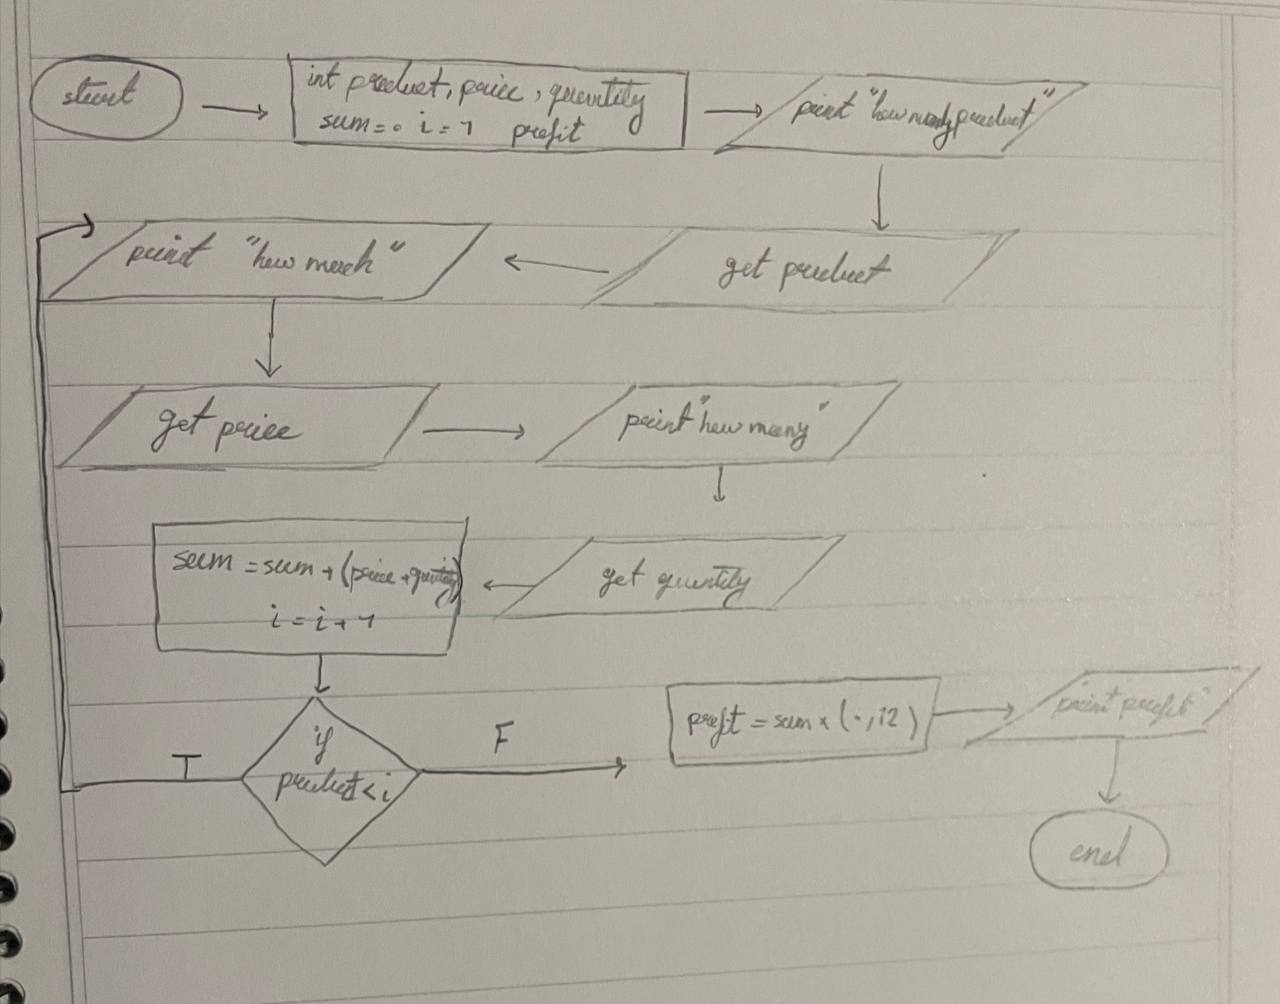 start
int product, price, quentity
sum=0 i=1 profit
print "how many product"
get product
print "how much"
get price
print "how many"
get quentity
sum = sum + (price +
i = i + 1
if
product < i
T
F
profit = sum x (0,12)
print profit"
end